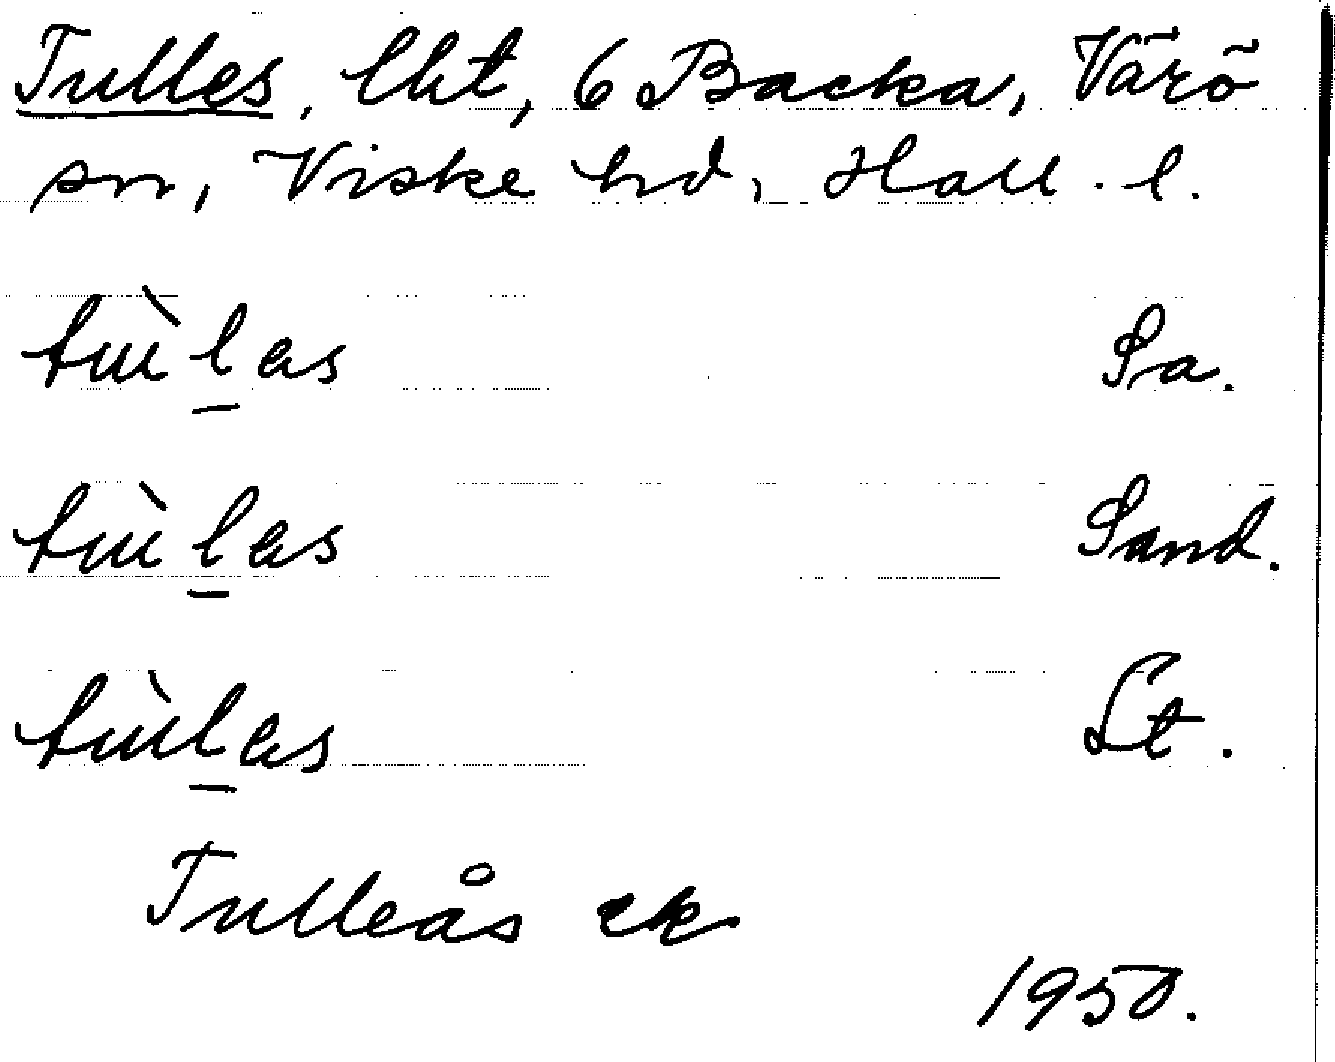 Tulles, lht, 6 Backa, Värö
sn, Viske hd, Hall. l.
tùlas Sa.
tùlas Sand.
tùlas Lt.
Tulleås ek
1950.